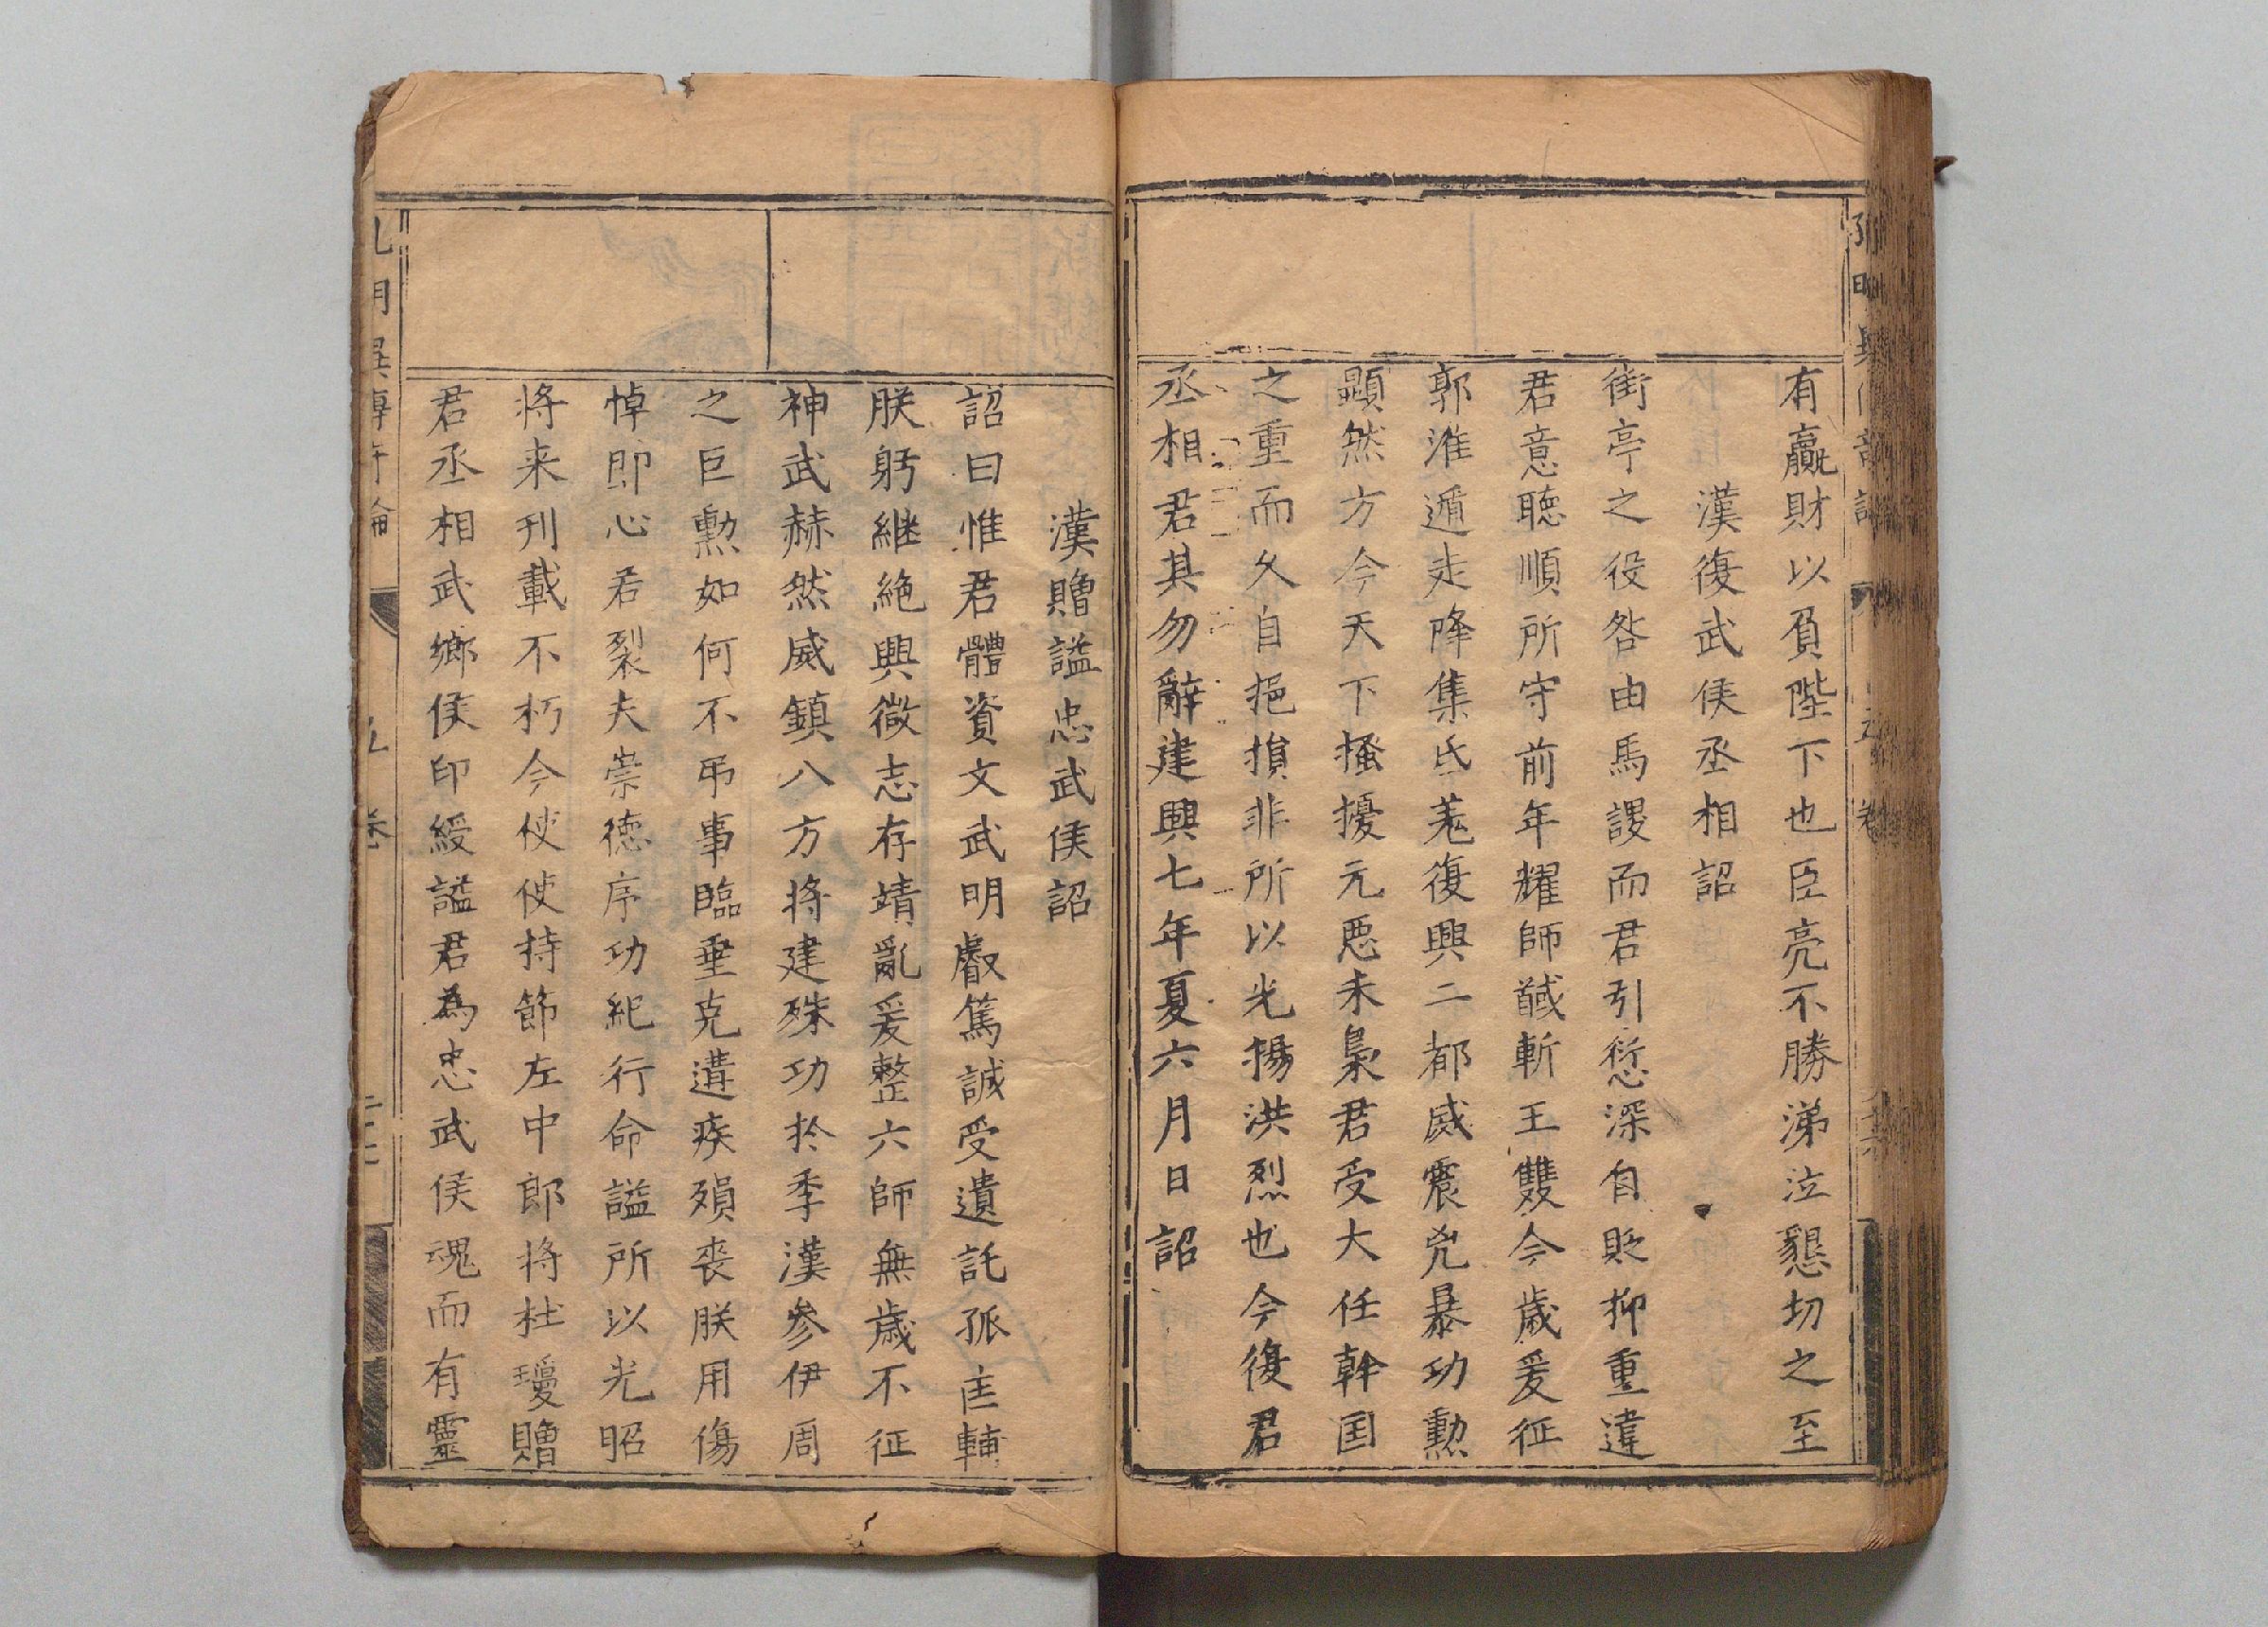 有贏財以負陛下也臣亮不勝涕泣懇切之至
漢復武侯丞相詔
街亭之役咎由馬謖而君引愆深自貶抑重違
君意聽順所守前年耀師馘斬王雙今歲爰征
郭淮遁走降集氐羌復興二都威震兇暴功勲
顯然方今天下搔擾元惡未梟君受大任幹国
之重而久自挹損非所以光揚洪烈也今復君
丞相君其勿辭建興七年夏六月日詔
漢贈謚忠武侯詔
詔曰惟君體資文武明叡篤誠受遺託孤匡輔
朕躬継絶興微志存靖亂爰整六師無歲不征
神武赫然威鎮八方将建殊功於季漢参伊周
之巨勲如何不吊事臨垂克遘疾殞喪朕用傷
悼即心若裂夫崇徳序功紀行命謚所以光昭
将来刊載不朽今使使持節左中郎将杜瓊贈
君丞相武鄉侯印綬謚君為忠武侯魂而有靈